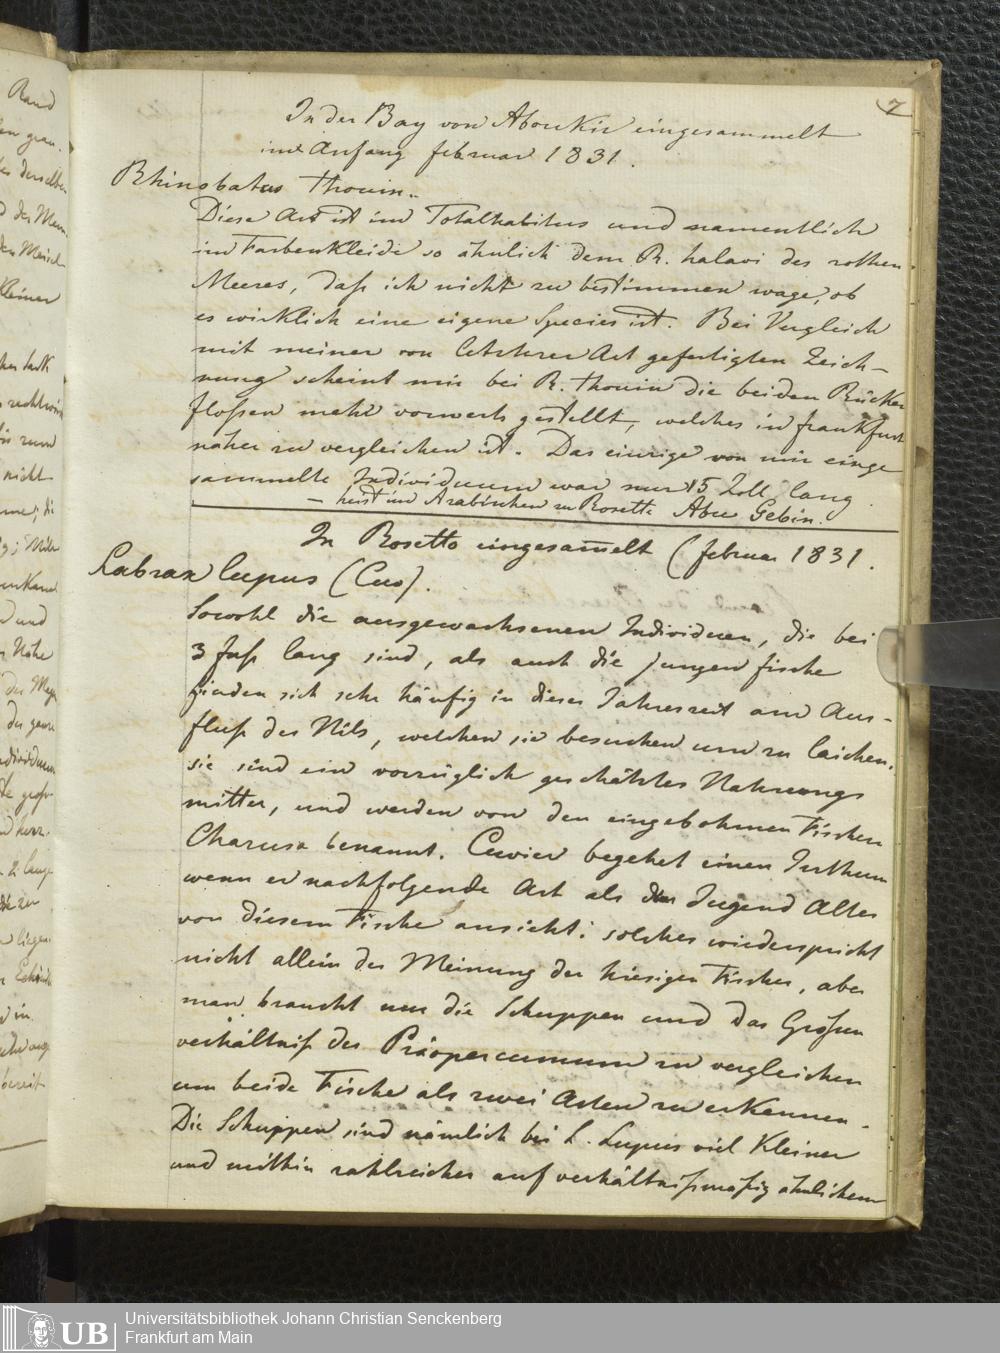 7
In der Bay von Aboukir eingesammelt
im Anfang Februar 1831.
Rhinobatus Thouin.
Diese Art ist im Totalhabitus und namentlich
im Farbenkleide so ähnlich dem R. halavi des rothen
Meeres, daß ich nicht zu bestimmen wage, ob
es wirklich eine eigene Species ist. Bei Vergleich
mit meiner von letzterer Art gefertigten Zeich-
nung scheint mir bei R. Thouin die beiden Rücken
floßen mehr vorwerts gestellt, welches in Frankfurt
näher zu vergleichen ist. Das einzige von mir einge
sammelte Individuum war nur 15 Zoll lang
– heist im Arabischen zu Rosette Abu Gebin.
In Rosetto eingesam̄elt (Februar 1831.
Labrax lupus (Cuv).
Sowohl die ausgewachsenen Individuen, die bei
3 Fuß lang sind, als auch die jungen Fische
finden sich sehr häufig in dieser Jahreszeit am Aus-
fluß des Nils, welchen sie besuchen um zu laichen.
sie sind ein vorzüglich geschätztes Nahrungs
mittel, und werden von den eingebohrnen Fischern
Charusx benannt. Cuvier begehet einen Irthum
wenn er nachfolgende Art als das Jugend Alter
von diesem Fische ansieht; solches wiederspricht
nicht allein der Meinung der hiesigen Fischer, aber
man braucht nur die Schuppen und das Großen
verhältniß des Präoperculums zu vergleichen
um beide Fische als zwei Arten zu erkennen.
Die Schuppen sind nämlich bei L. Lupus viel kleiner
und mithin zahlreicher auf verhältnißmäßig ähnlichem
Rand
der Mem
kleiner
nicht
und
Nähe
UB
Universitätsbibliothek Johann Christian Senckenberg
Frankfurt am Main